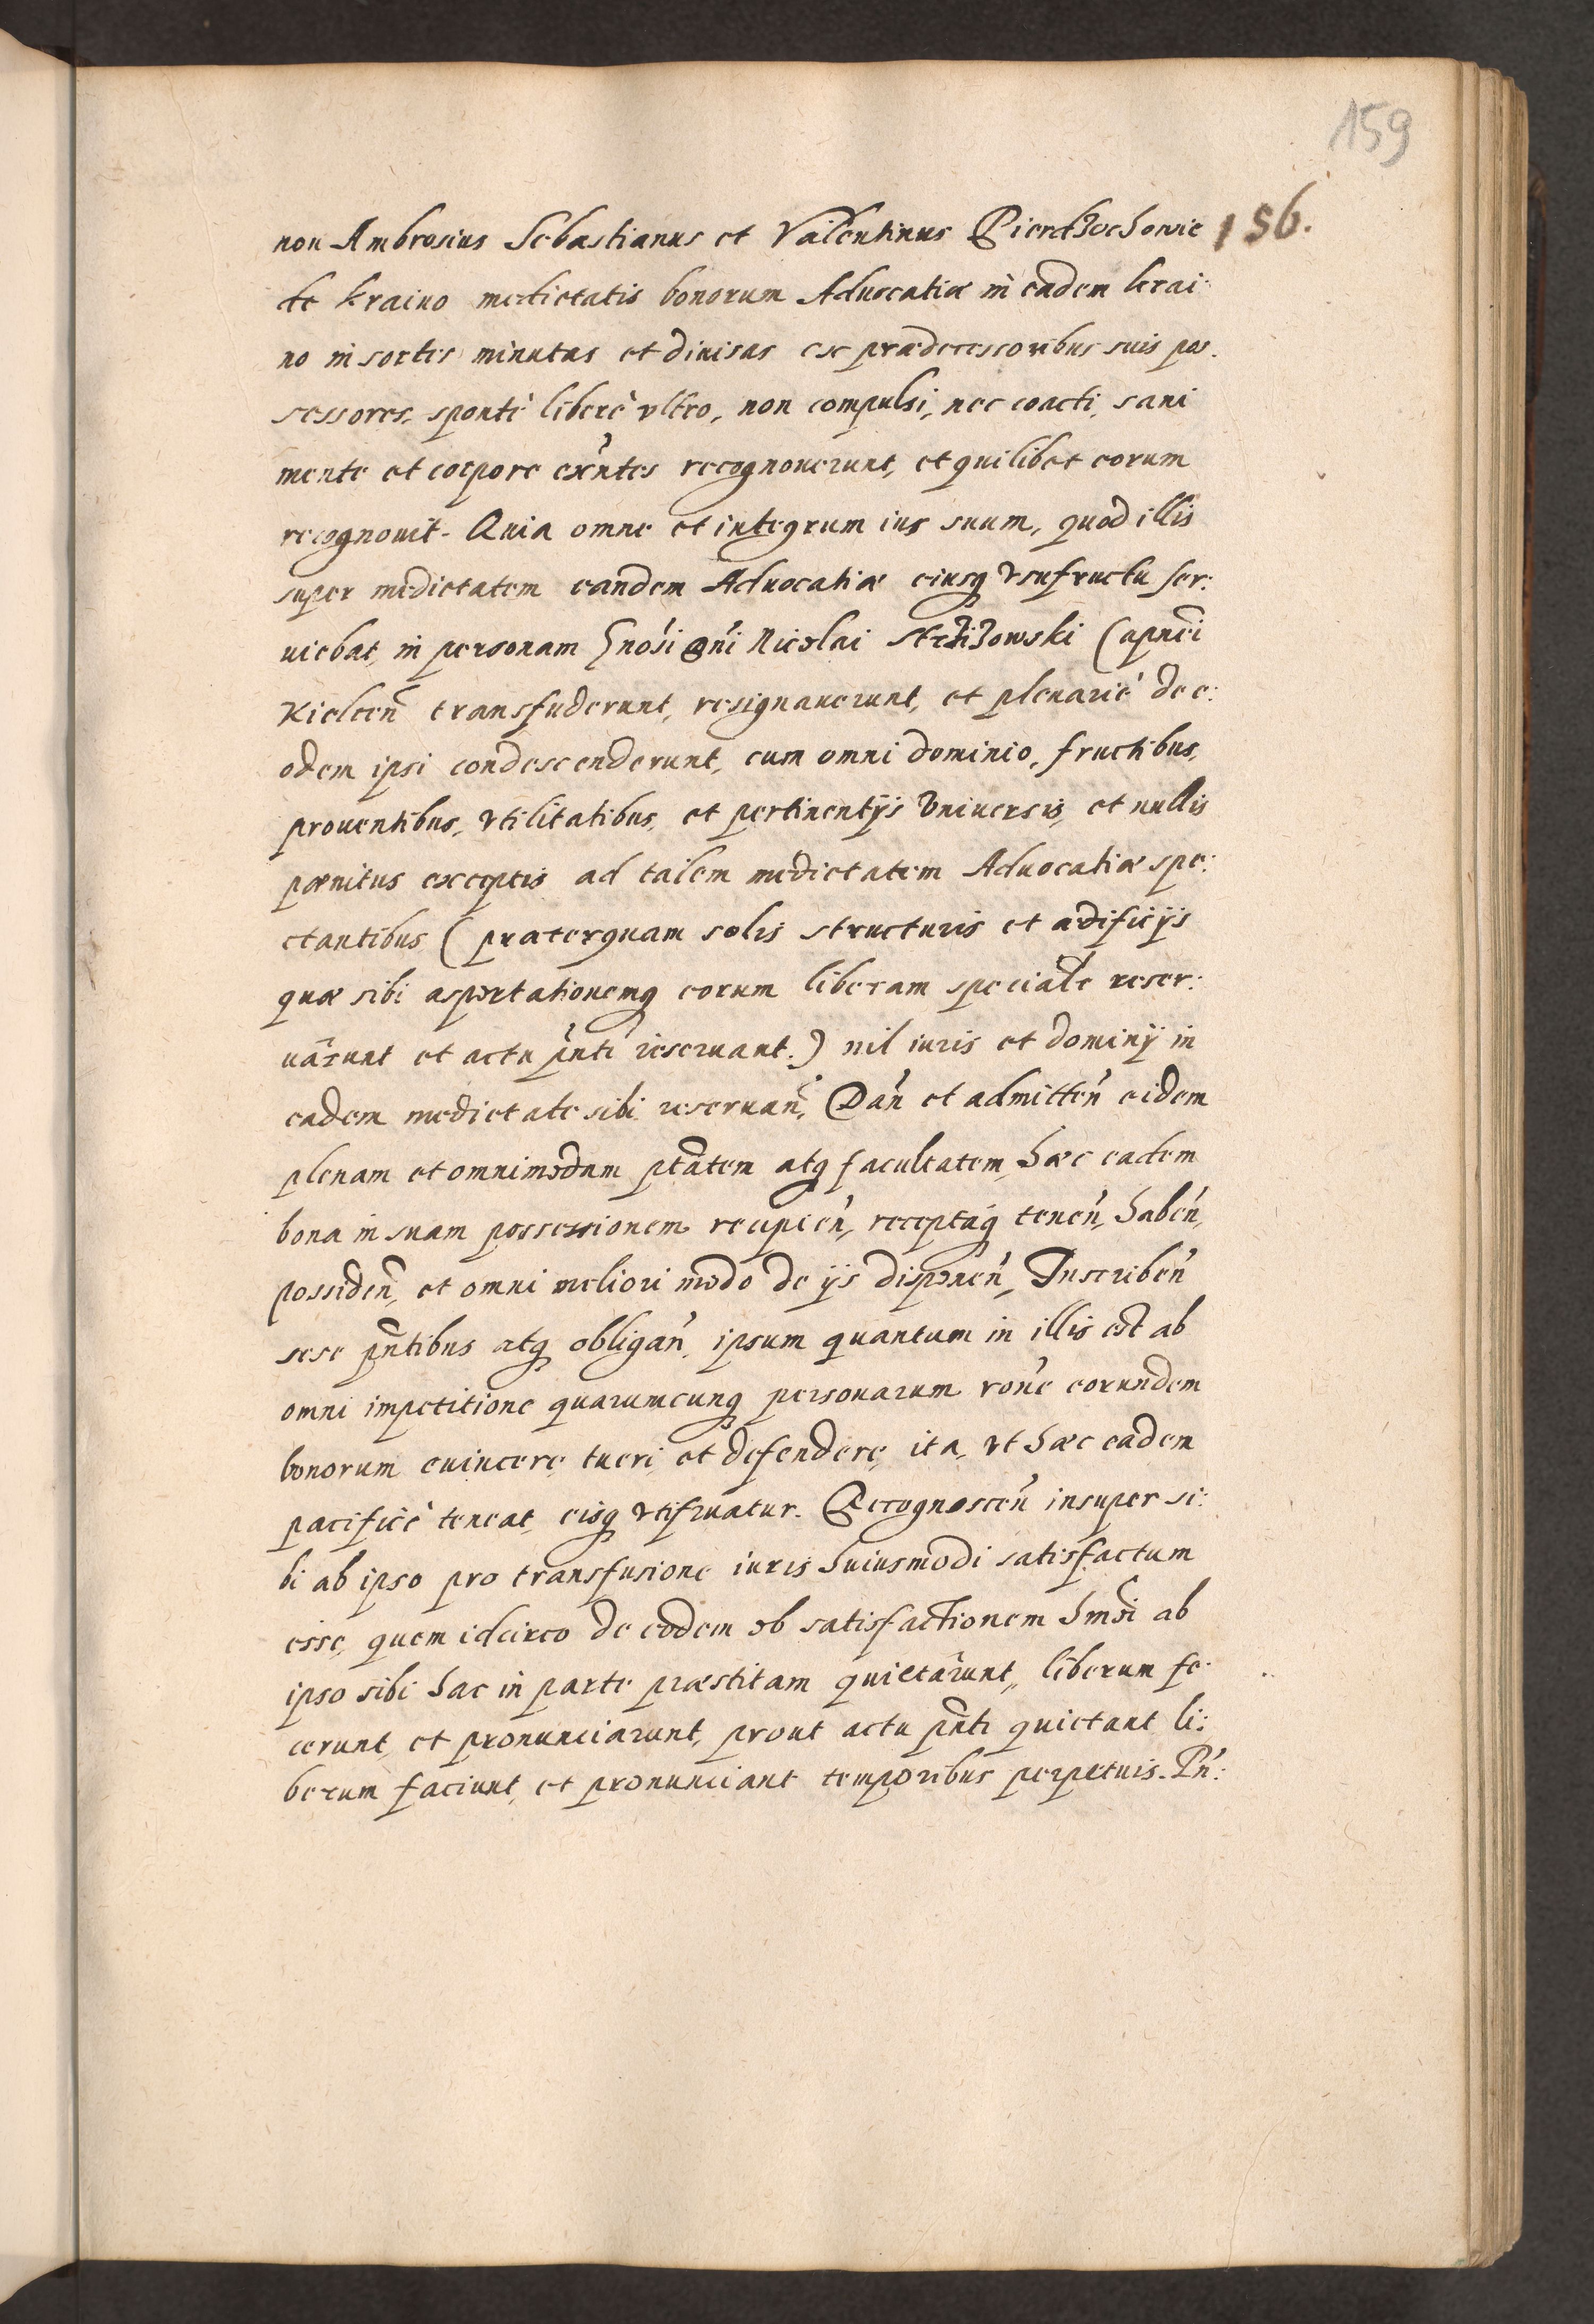 159
156.
non Ambrosius Sebastianus et Valentinus Pierdzochowie
de Kraino medietatis bonorum Aduocatiæ in eadem Krai:
no in sortes minutas et diuisas ex prædecessoribus suis pos:
sessores, sponte libere vltro, non compulsi, nec coacti, sani
mente et corpore exn̄tes recognouerunt, et quilibet eorum
recognouit. Quia omne et integrum ius suum, quod illis
super medietatem eandem Aduocatiæ eiusq vsufructu ser:
uiebat, in personam Gnōsi Dn̄i Nicolai Strzizowski Capn̄ei
Kielcen̄ transfuderunt, resignauerunt, et plenariè de e:
odem ipsi condescenderunt, cum omni dominio, fructibus,
prouentibus, vtilitatibus, et pertinentijs vniuersis, et nullis
pænitus exceptis ad talem medietatem Aduocatiæ spe:
ctantibus (præterquam solis structuris et ædificijs
quæ sibi asportationemq eorum liberam specialr̄ reser:
uârunt et actu pn̄ti reseruant.) nil iuris et dominij in
eadem medietate sibi reseruan̄, Dan̄ et admitten̄ eidem
plenam et omnimodam ptātem atq facultatem, hæc eadem
bona in suam possessionem recipien̄, receptaq tenen̄, haben̄,
possiden̄, et omni meliori modo de ijs disponen̄, Inscriben̄
sese pn̄tibus atq obligan̄, ipsum quantum in illis est ab
omni impetitione quarumcunq personarum rōne eorundem
bonorum euincere, tueri, et defendere, ita, vt hæc eadem
pacificè teneat, eisq vtifruatur. Recognoscen̄ insuper si:
bi ab ipso pro transfusione iuris huiusmodi satisfactum
esse, quem idcirco de eodem ob satisfactionem hmōi ab
ipso sibi hac in parte præstitam quietârunt, liberum fe:
cerunt, et pronunciarunt, prout actu pn̄ti quietant li:
berum faciunt, et pronunciant temporibus perpetuis. Pn̄: